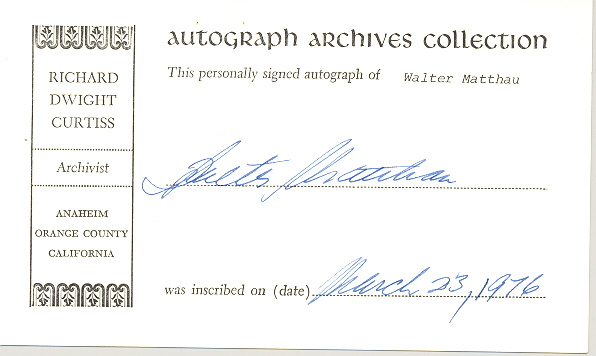 RICHARD
DWIGHT
CURTISS
Archivist
ANAHEIM
ORANGE COUNTY
CALIFORNIA
AUTOGRAPH ARCHIVES COLLECTION
This personally signed autograph of Walter Matthau
Walter Matthau
was inscribed on (date) March 23, 1976